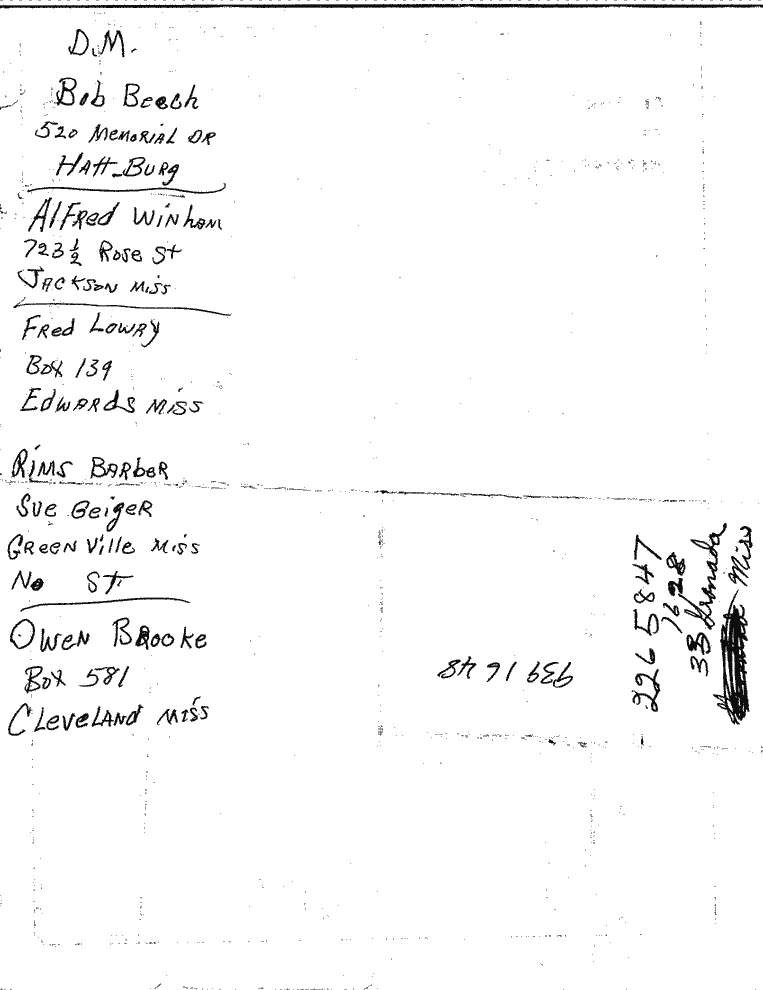 D.M.
Bob Beech
520 Memorial DR
HATT-BURG
Alfred Winham
723½ Rose St
Jackson Miss
Fred Lowry
Box 139
Edwards Miss
Rims Barber
Sue Geiger
Greenville Miss
No St
Owen Brooke
Box 581
Cleveland Miss
939 16 48
226 5847
1628
33 Grenada
Miss